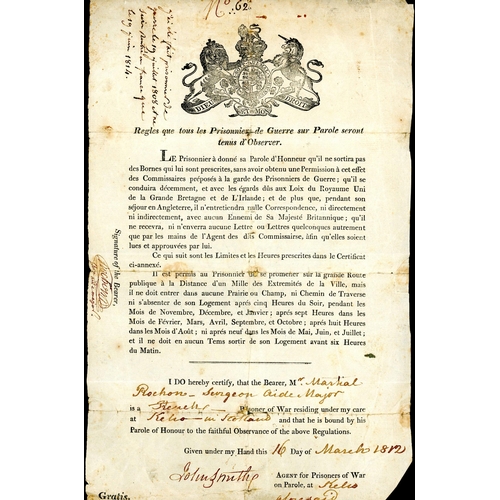 No. 62
j'ai été fait prisonnier de
guerre le 19 juillet 1808 et ne
suis rentré en france que
le 19 juin 1814.
DIEU ET MON DROIT
Regles que tous les Prisonniers de Guerre sur Parole seront
tenus d'Observer.
LE Prisonnier à donné sa Parole d'Honneur qu'il ne sortira pas
des Bornes qui lui sont prescrites, sans avoir obtenu une Permission à cet effet
des Commissaires préposés à la garde des Prisonniers de Guerre; qu'il se
conduira décemment, et avec les égards dûs aux Loix du Royaume Uni
de la Grande Bretagne et de L'Irlande; et de plus que, pendant son
séjour en Angleterre, il n'entretiendra nulle Correspondence, ni directement
ni indirectement, avec aucun Ennemi de Sa Majesté Britannique; qu'il
ne recevra, ni n'enverra aucune Lettre ou Lettres quelconques autrement
que par les mains de l'Agent des dits Commissaires, àfin qu'elles soient
lues et approuvées par lui.
Ce qui suit sont les Limites et les Heures prescrites dans le Certificat
ci-annexé.
Il est permis au Prisonnier de se promener sur la grande Route
publique à la Distance d'un Mile des Extremités de la Ville, mais
il ne doit entrer dans aucune Prairie ou Champ, ni Chemin de Traverse
ni s'absenter de son Logement après cinq Heures du Soir, pendant les
Mois de Novembre, Décembre, et Janvier; après sept Heures dans les
Mois de Février, Mars, Avril, Septembre, et Octobre; après huit Heures
dans les Mois d'Août; ni après neuf dans les Mois de Mai, Juin, et Juillet; et
il ne doit en aucun Tems sortir de son Logement avant six Heures
du Matin.
Signature of the Bearer.
I DO hereby certify, that the Bearer, Mr. Martial
Rochon - Surgeon Aide Major
is a French Prisoner of War residing under my care
at Kelso - in Scotland and that he is bound by his
Parole of Honour to the faithful Observance of the above Regulations.
Given under my Hand this 16 Day of March 1812
John Smith AGENT for Prisoners of War
on Parole, at Kelso
Gratis.